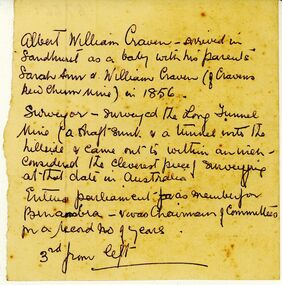 Albert William Craven – arrived in
Sandhurst as a baby with his parents
Sarah Ann & William Craven (of Cravens
New Chum Mine) in 1856.
Surveyor – surveyed the Long Tunnel
Mine (a shaft sunk & a tunnel into the
hillside & came out to within an inch –
considered the cleverest piece of surveying
at that date in Australia.
Entered parliament as member for
Benambra – & was Chairman of Committees
for a record no of years.
3rd from left